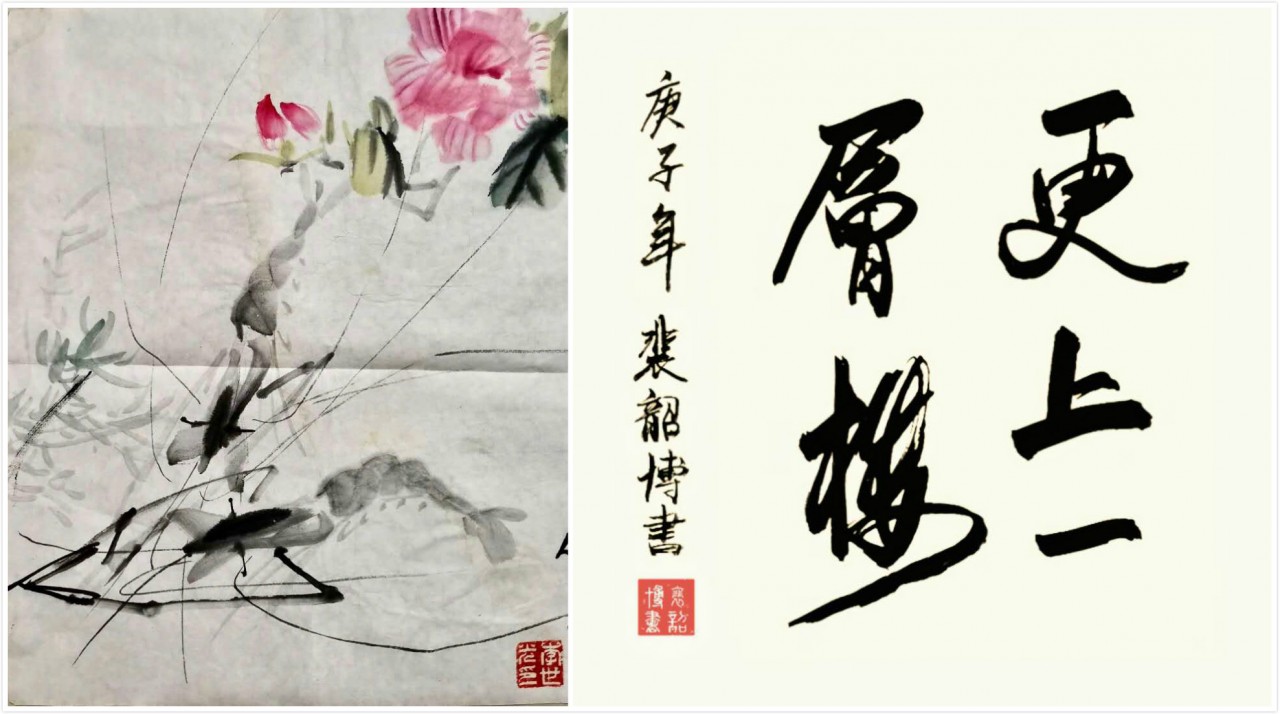 李世
光印
更上一
層樓
庚子年 裴韶博書
裴韶
博書